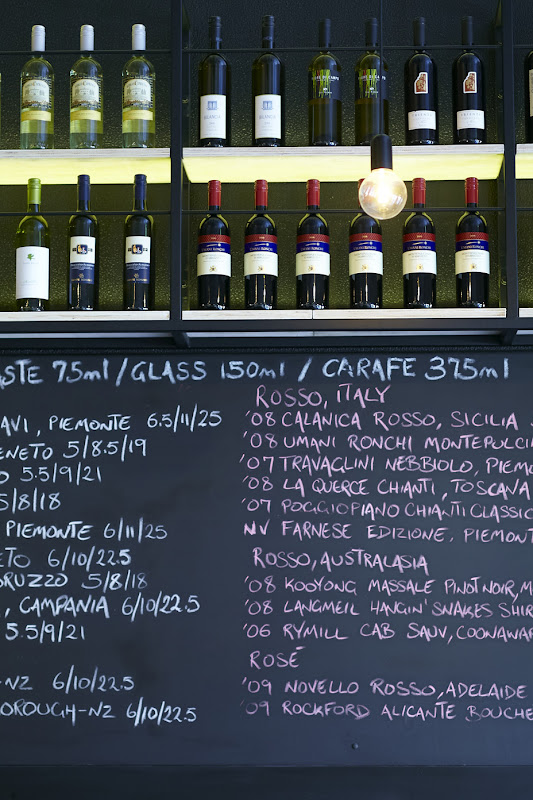 ASTE 75ml / GLASS 150ml / CARAFE 375ml
AVI, PIEMONTE 6.5/11/25
ENETO 5/8.5/19
O 5.5/9/21
5/8/18
PIEMONTE 6/11/25
ETO 6/10/22.5
BRUZZO 5/8/18
, CAMPANIA 6/10/22.5
5.5/9/21
-NZ 6/10/22.5
BOROUGH-NZ 6/10/22.5
ROSSO, ITALY
'08 CALANICA ROSSO, SICILIA
'08 UMANI RONCHI MONTEPULCI
'07 TRAVAGLINI NEBBIOLO, PIEMO
'08 LA QUERCE CHIANTI, TOSCANA
'07 POGGIOPIANO CHIANTI CLASSIC
NV FARNESE EDIZIONE, PIEMONT
ROSSO, AUSTRALASIA
'08 KOOYONG MASSALE PINOT NOIR, M
'08 LANGMEIL HANGIN' SNAKES SHIR
'06 RYMILL CAB SAUV, COONAWAR
ROSÉ
'09 NOVELLO ROSSO, ADELAIDE
'09 ROCKFORD ALICANTE BOUCHE